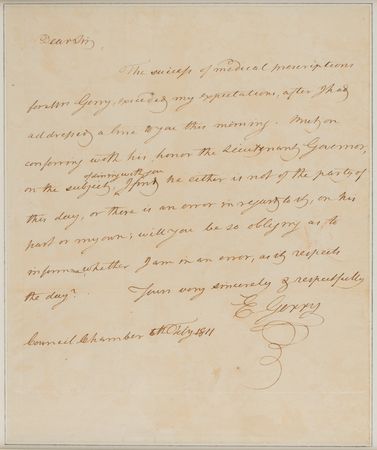 Dear Sir,
The success of medical prescriptions
for Mrs Gerry, exceeded my expectations, after I had
addressed a line to you this morning. But, on
conferring with his honor the Lieutenant Governor,
of dining with you
on the subject, I find he either is not of the party of
this day, or there is an error in regard to it, on his
part or my own; will you be so obliging as to
inform whether I am in an error, as it respects
the day?
Yours very sincerely & respectfully
E Gerry
Council Chamber 8th Feby 1811